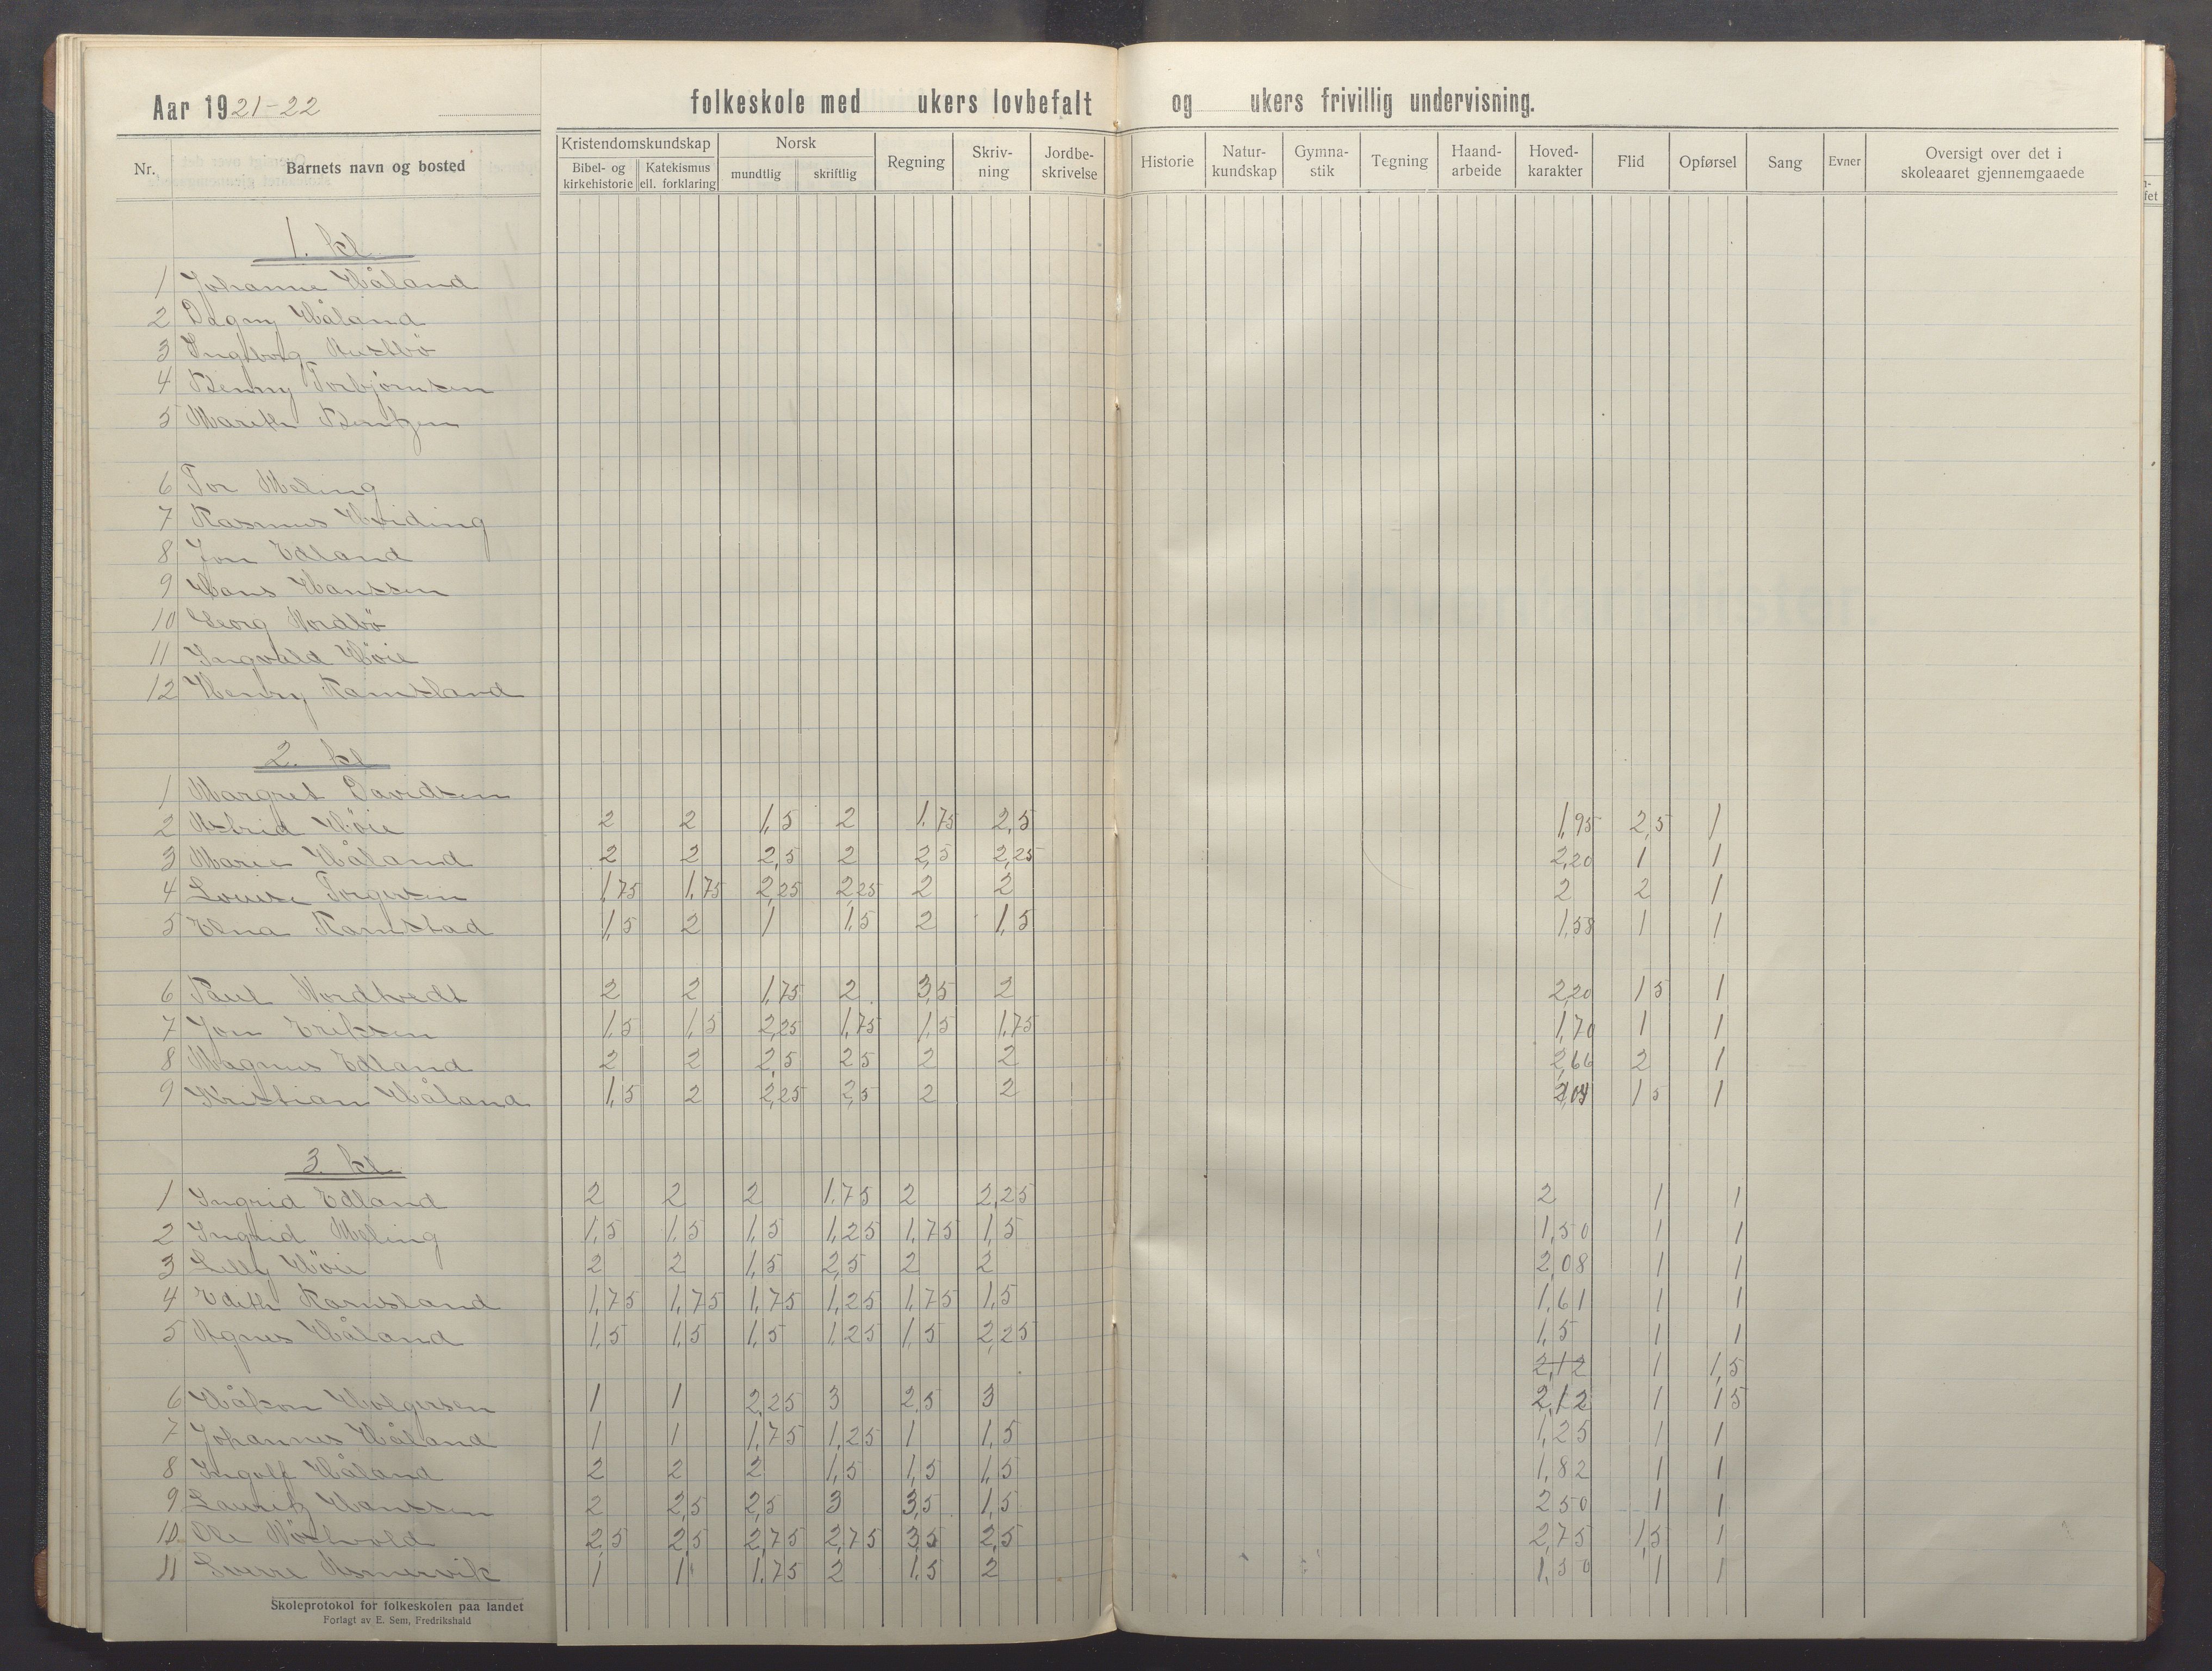 Aar 1921-22 folkeskole med ukers lovbefalt og ukers frivillig undervisning.
Nr. Barnets navn og bosted Kristendomskundskap Bibel- og kirkehistorie Katekismus ell. forklaring Norsk mundtlig skriftlig Regning Skriv- ning Jordbe- skrivelse Historie Natur- kundskap Gymna- stik Tegning Haand- arbeide Hoved- karakter Flid Opførsel Sang Evner Oversigt over det i skoleaaret gjennemgaaede
1. kl
1 Johanne Håland
2 Dagny Håland
3 Ingborg Austbö
4 Benny Torbjörnsen
5 Marith Bentzen
6 Tor Meling
7 Rasmus Hviding
8 Jon Edland
9 Hans Hanssen
10 Georg Nordbö
11 Ingvald Höie
12 Henry Ramsland
2. kl
1 Margret Davidsen
2 Astrid Höie 2 2 1,5 2 1,75 2,5 1,95 2,5 1
3 Marie Håland 2 2 2,5 2 2,5 2,25 2,20 1 1
4 Louise Torgersen 1,75 1,75 2,25 2,25 2 2 2 2 1
5 Elna Ramstad 1,5 2 1 1,5 2 1,5 1,58 1 1
6 Paul Nordtvedt 2 2 1,75 2 3,5 2 2,20 1 5 1
7 Jon Eriksen 1,5 1,5 2,25 1,75 1,5 1,75 1,70 1 1
8 Magnus Edland 2 2 2,5 2 5 2 2 2,66 2 1
9 Kristian Håland 1,5 2 2,25 2,5 2 2 2,04 1 5 1
3. kl
1 Ingrid Edland 2 2 2 1,75 2 2,25 2 1 1
2 Ingrid Meling 1,5 1,5 1,5 1,25 1,75 1,5 1,50 1 1
3 Lilly Höie 2 2 1,5 2,5 2 2 2,08 1 1
4 Edith Ramsland 1,75 1,75 1,75 1,25 1,75 1,5 1,61 1 1
5 Agnes Håland 1,5 1,5 1,5 1,25 1,5 2,25 1,5 1 1
2,12 1 1,5
6 Håkon Holgersen 1 1 2,25 3 2,5 3 2,12 1 1 5
7 Johannes Håland 1 1 1,75 1,25 1 1,5 1,25 1 1
8 Ingolf Håland 2 2 2 1,5 1,5 1,5 1,82 1 1
9 Lauritz Hanssen 2 2,5 2,5 3 3,5 1,5 2 50 1 1
10. Ole 2,5 2,5 2,75 2,75 3,5 2,5 2,75 1,5 1
11 Sverre Asmervik 1 1 1,75 2 1,5 2 1,50 1 1
Skoleprotokol for folkeskolen paa landet
Forlagt av E. Sem, Fredrikshald